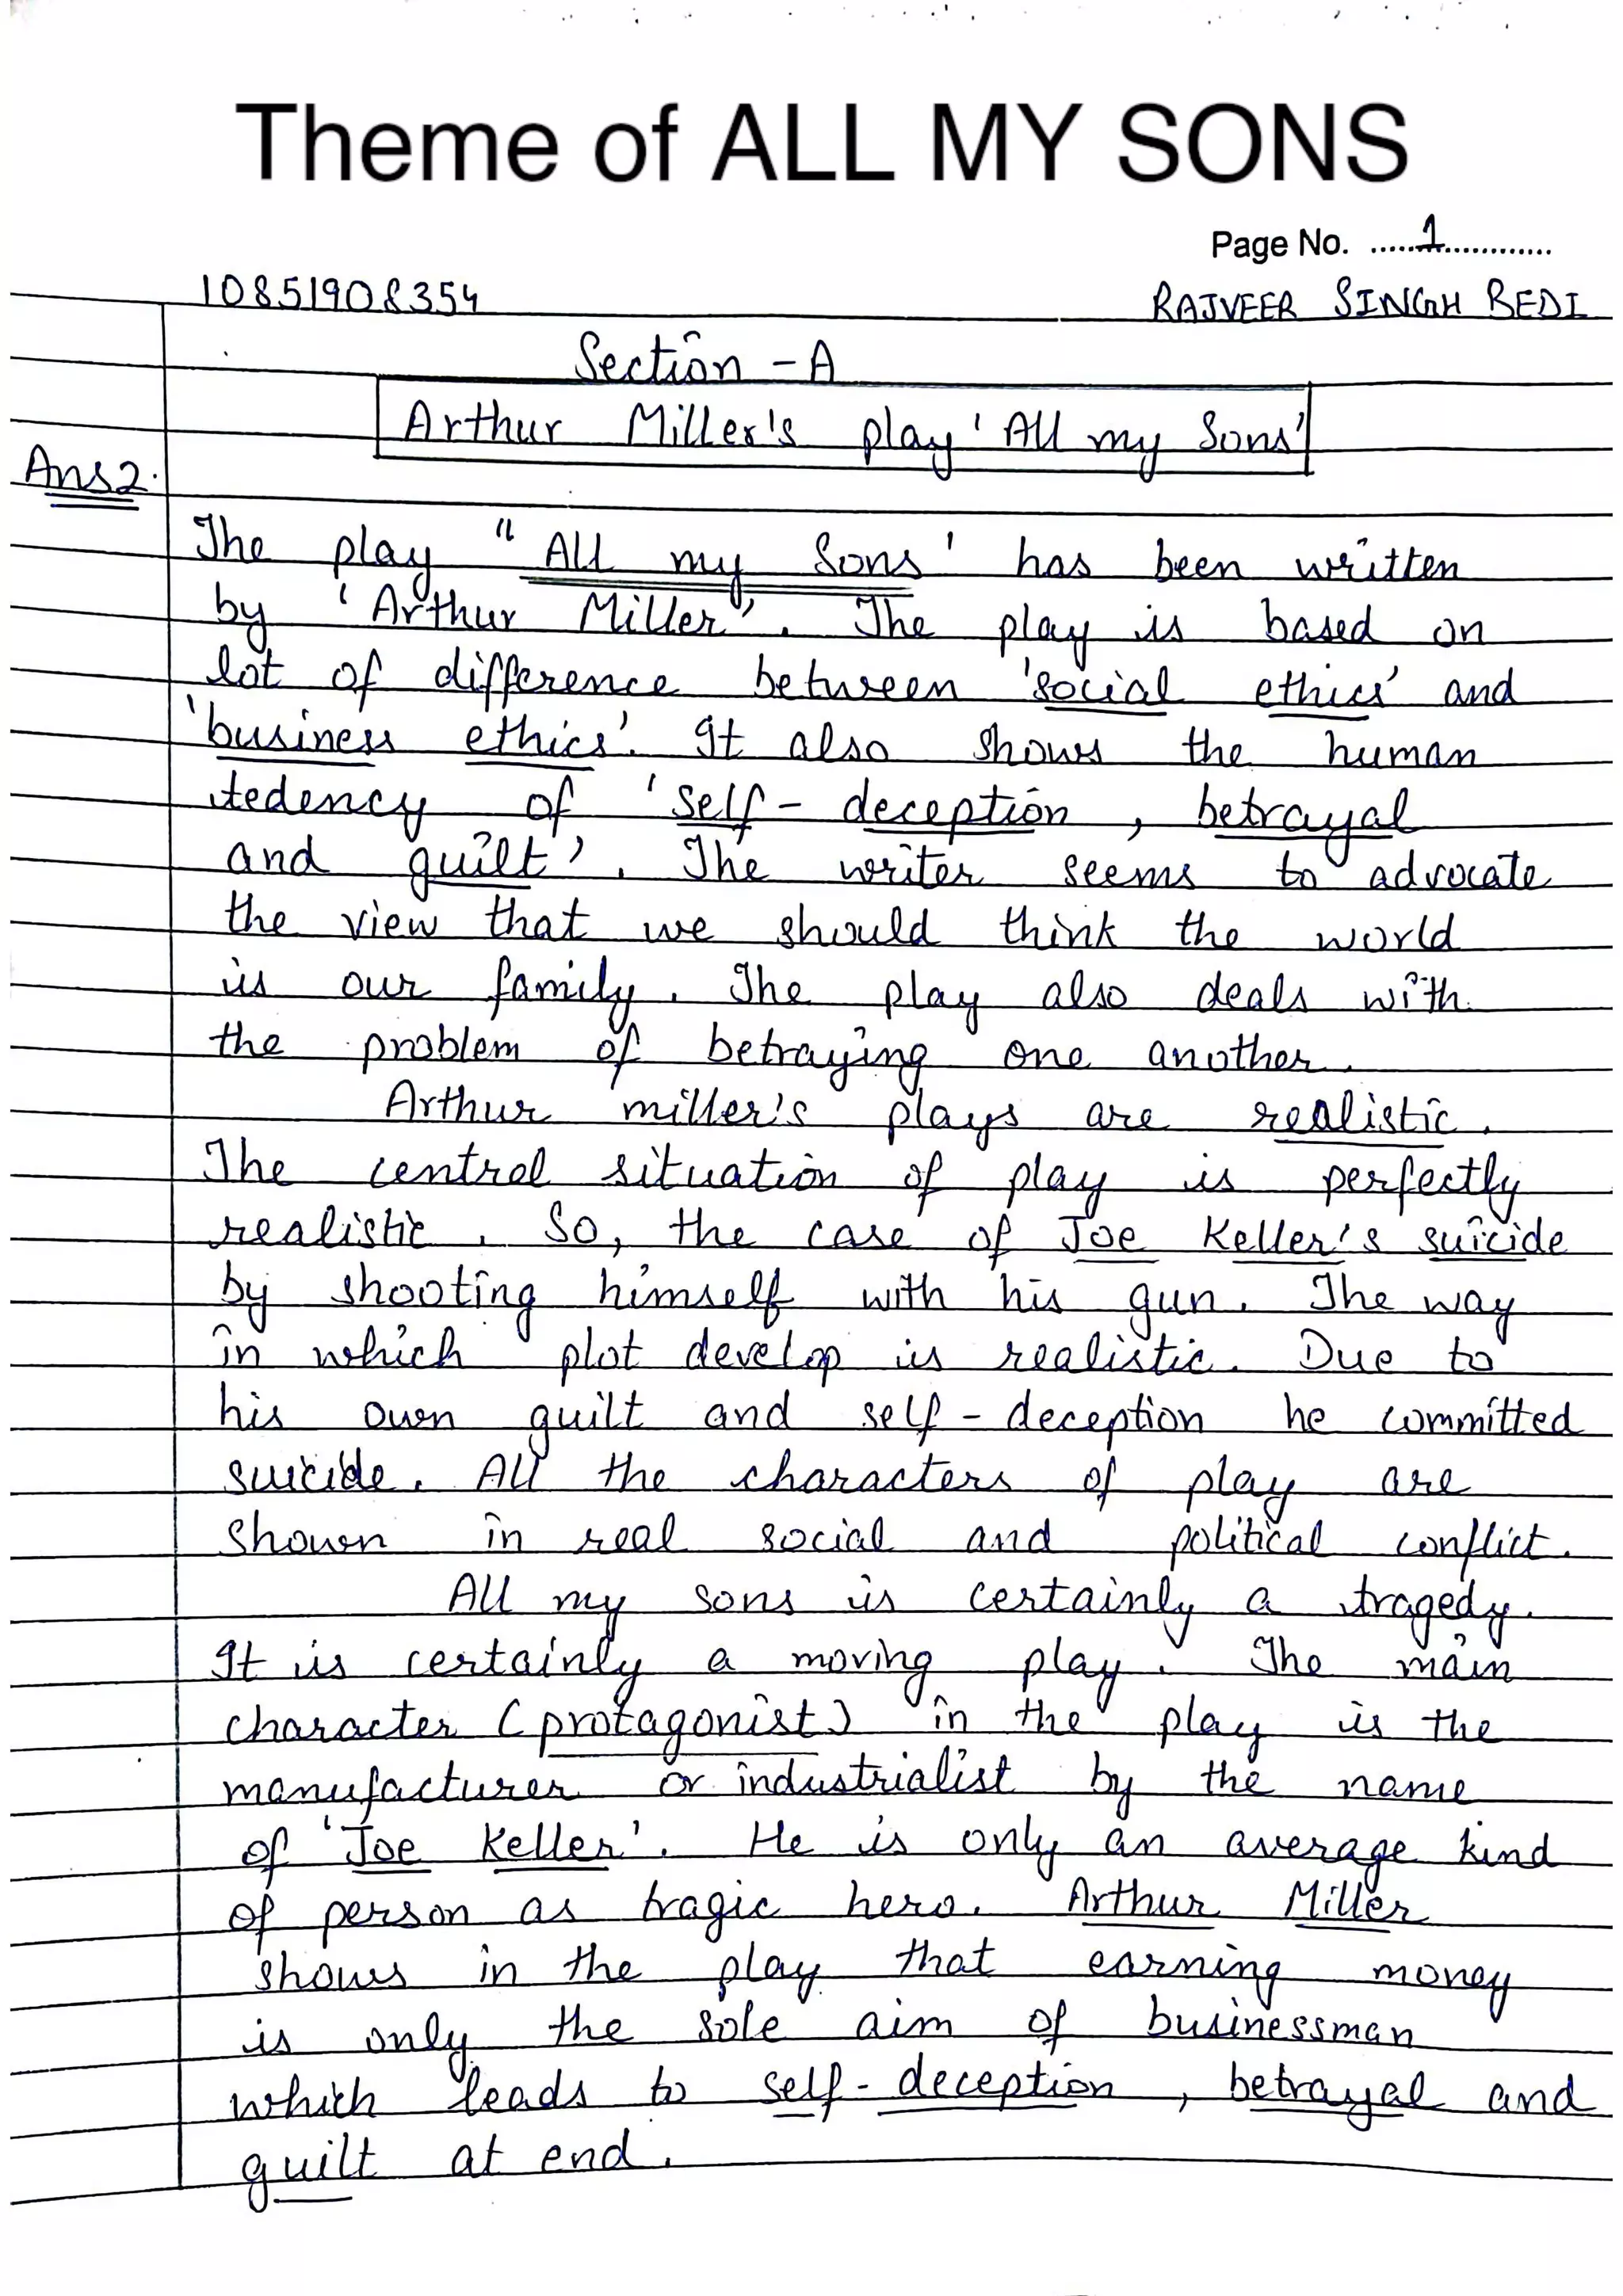 Theme of ALL MY SONS
Page No. ......1.............
10851908354 RAJVEER SINGH BEDI
Section - A
Arthur Miller's play 'All my Sons'
Ans2.
The play "All my Sons' has been written
by 'Arthur Miller'. The play is based on
lot of difference between 'social ethics' and
'business ethics'. It also shows the human
tedency of 'self - deception, betrayal
and guilt'. The writer seems to advocate
the view that we should think the world
is our family. The play also deals with
the problem of betraying one another.
Arthur miller's plays are realistic.
The central situation of play is perfectly
realistic. So, the case of Joe Keller's suicide
by shooting himself with his gun. The way
in which plot develop is realistic. Due to
his own guilt and self - deception he committed
suicide. All the characters of play are
shown in real social and political conflict.
All my sons is certainly a tragedy.
It is certainly a moving play. The main
character (protagonist) in the play is the
manufacturer or industrialist by the name
of 'Joe Keller'. He is only an average kind
of person as tragic hero. Arthur Miller
shows in the play that earning money
is only the sole aim of businessman
which leads to self - deception, betrayal and
guilt at end.